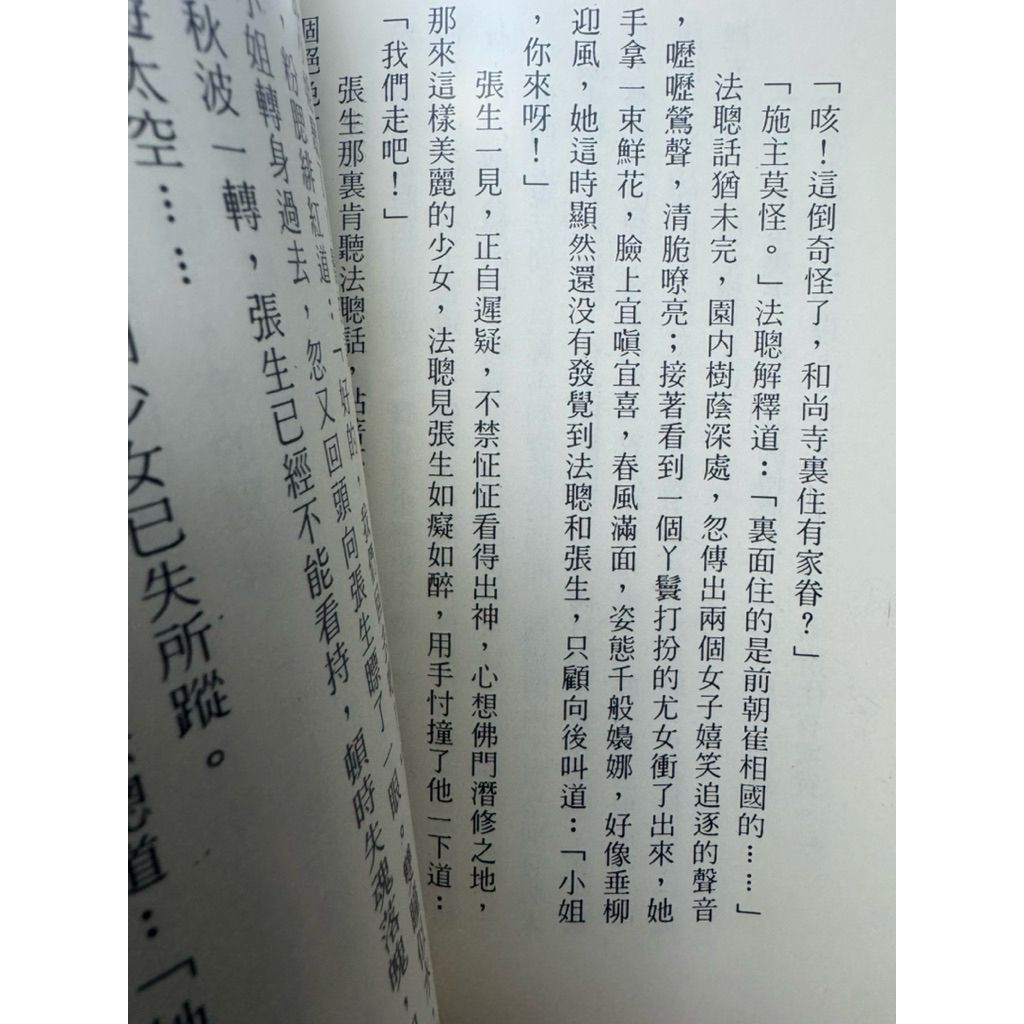 「咳！這倒奇怪了，和尚寺裏住有家眷？」
「施主莫怪。」法聰解釋道：「裏面住的是前朝崔相國的……」
法聰話猶未完，園内樹蔭深處，忽傳出兩個女子嬉笑追逐的聲音
，嚦嚦鶯聲，清脆嘹亮；接著看到一個丫鬟打扮的尤女衝了出來，她
手拿一束鮮花，臉上宜嗔宜喜，春風滿面，姿態千般嬝娜，好像垂柳
迎風，她這時顯然還没有發覺到法聰和張生，只顧向後叫道：「小姐
，你來呀！」
張生一見，正自遲疑，不禁怔怔看得出神，心想佛門潛修之地，
那來這樣美麗的少女，法聰見張生如癡如醉，用手忖撞了他一下道：
「我們走吧！」
張生那裏肯聽法聰話，
道：「好的，我們
小姐轉身過去，忽又回頭向張生瞟了一眼。
秋波一轉，張生已經不能看持，頓時失魂落魄，
太空……
少女已失所蹤。
道：「她